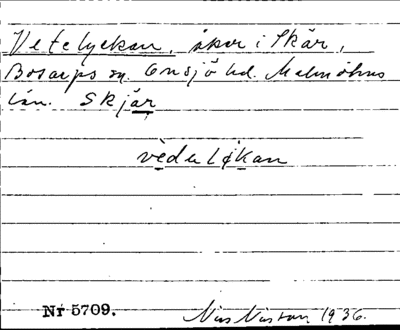 Vetelyckan, åker i Skär,
Bosarps sn. Onsjö hd. Malmöhus
län. Skjär
vèdeløkan
Nr 5709.
Nils Nilsson 1936.